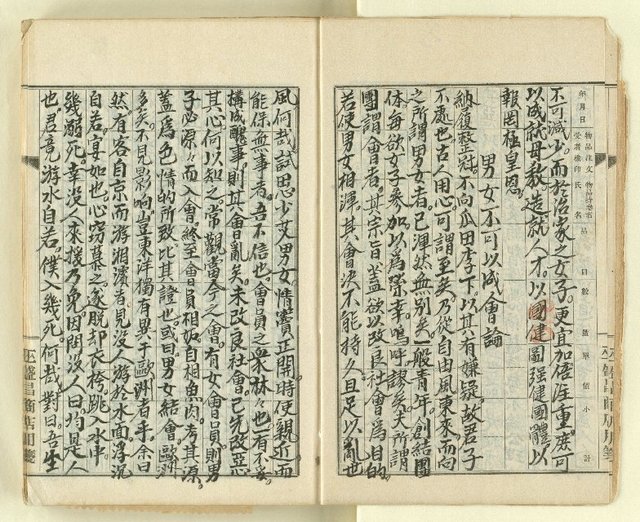 年月日
物品注文受者德印
物品持參者氏名
品目
數量
單價
小計
不可減少。而於治家之女子。更宜加倍注重。庶可
以成就母教。造就人才。以國健圖强健國體。以
報罔極皇恩。
男女不可以成會論
納履整冠。不向瓜田李下。以其有嫌疑。故君子
不處也。古人用心。可謂至矣。乃從自由風東來。而向
之所謂男女者。已渾然無別矣。一般青年。創結團
体。每欲女子參加。以為榮幸。嗚呼謬矣。夫所謂
團謂會者。其宗旨盖欲以改良社會為目的。
若使男女相渾。其會決不能持久。且足以亂世
風。何哉。試思少艾男女。情竇正開時。使親近而
能保無事者。吾不信也。會員之血木林々也。有不妥。
構成醜事。則其會亂矣。未改良社會。已先改惡
其心。何以知之。常觀當今之會。有女會員。則男
子必源々而入會。終至會員相妬自相魚肉。考其源。
盖為色情的所致。比其證也。或曰男女結會。歐洲
多矣。不見影响。豈東洋獨有異于歐洲者乎。余曰
然。有客自京而游湘濱者。見沒人游於水面。浮沉
自若。宴如也。心竊慕之。遂脫却衣袴。跳入水中。
幾溺死。幸沒人來援。乃免。因問沒人曰。均是人
也。君竟游水自若。僕入幾死。何哉。對曰。吾生